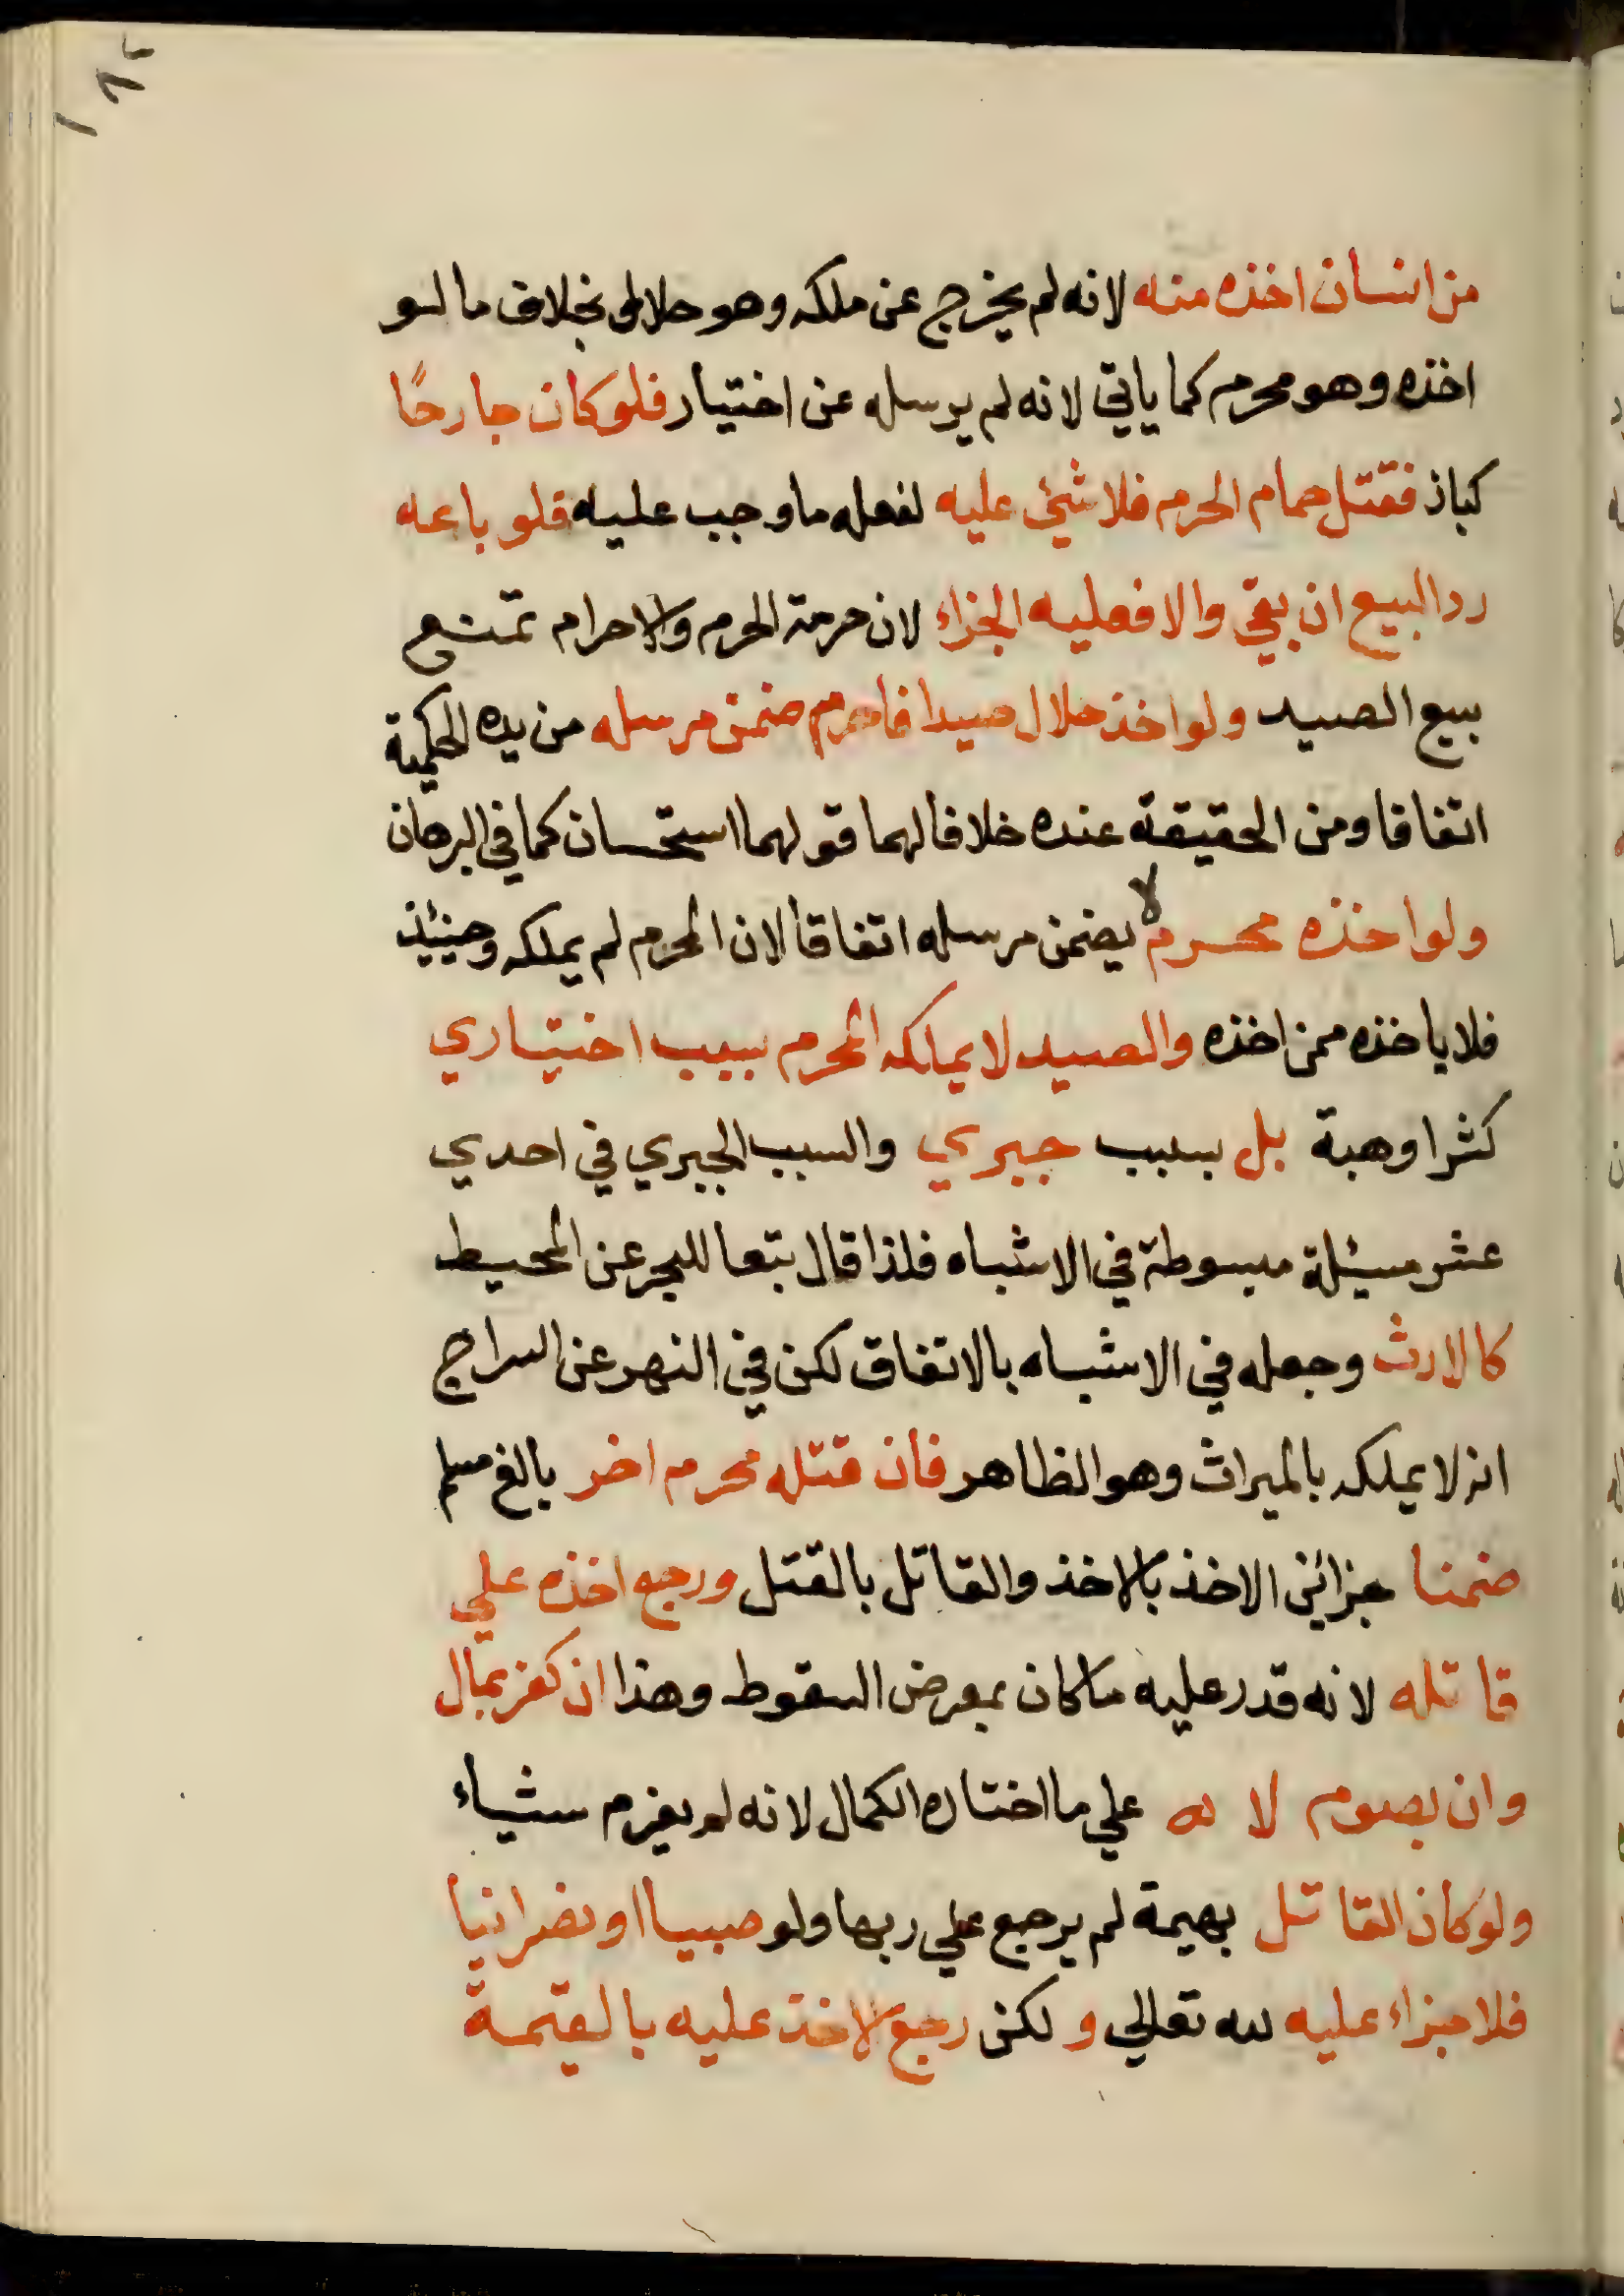 ١٩٢
من انسان اخذه منه لانه لم يخرج عن ملكه وهو حلال بخلاف ما لسو
اخذه وهو محرم كما ياتي لانه لم يرسله عن اختيار فلوكان جارحًا
كباز فقتل حمام الحرم فلا شئ عليه لفعله ما وجب عليه فلو باعه
رد البيع ان بقي والا فعليه الجزاء لان حرمة الحرم والاحرام تمنع
بيع الصيد ولو اخذ حلال صيدا فاحرم ضمن مرسله من يده الحكمية
اتفاقا ومن الحقيقة عنده خلافا لهما قولهما استحسان كما في البرهان
ولو اخذه محرم لا يضمن مرسله اتفاقا لان المحرم لم يملكه وحينئذ
فلا ياخذه ممن اخذه والصيد لا يملكه المحرم بسبب اختياري
كشرا وهبة بل بسبب جبري والسبب الجبري في احدي
عشر مسئلة مبسوطة في الاشباه فلذا قال تبعا للبحر عن المحيط
كالارث وجعله في الاشباه بالاتفاق لكن في النهر عن السراج
انه لا يملكه بالميراث وهو الظاهر فان قتله محرم اخر بالغ مسلم
ضمنا جزائين الاخذ بالاخذ والقاتل بالقتل ورجع اخذه علي
قاتله لانه قدر عليه ما كان بمعرض السقوط وهذا ان كفر بمال
وان بصوم لا له علي ما اختاره الكمال لانه لم يغرم شياء
ولو كان القاتل بهيمة لم يرجع علي ربها ولو صبيا او نصرانيا
فلا جزاء عليه لله تعالي و لكن رجع الاخذ عليه بالقيمة